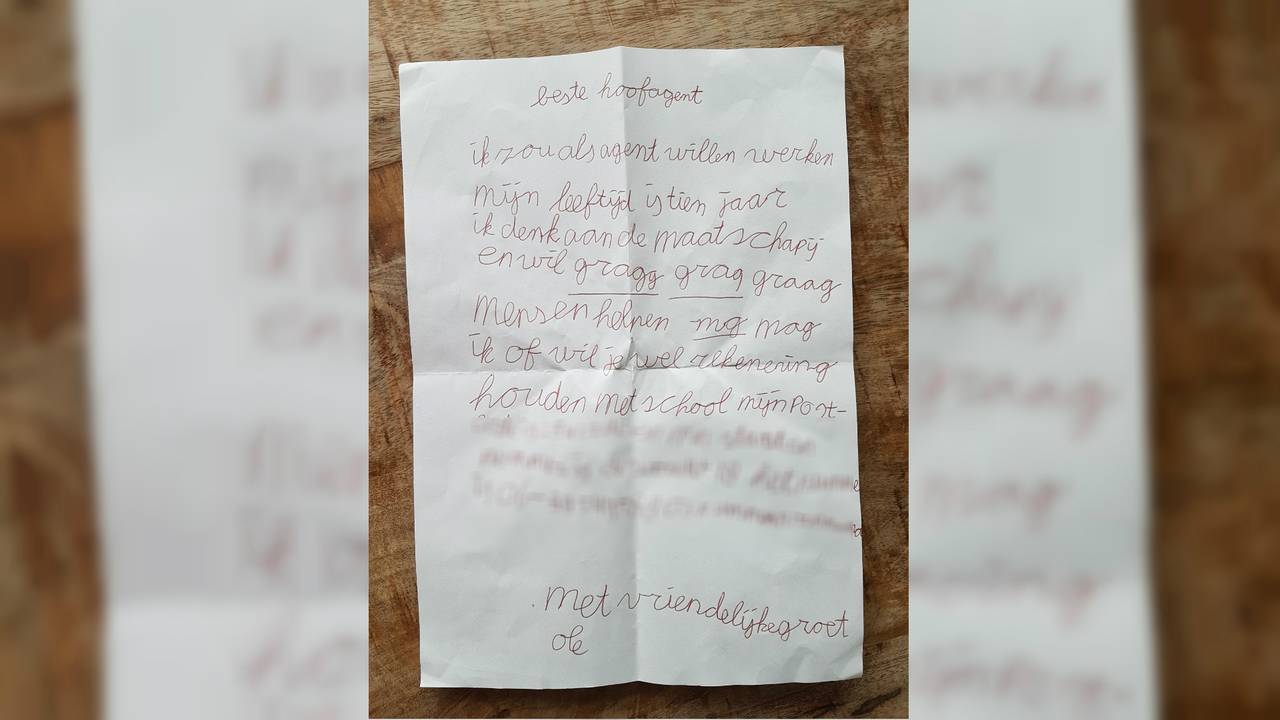 beste hoofagent
ik zou als agent willen werken
mijn leeftijd is tien jaar
ik denk aan de maatschapij
en wil gragg grag graag
mensen helpen mg mag
ik of wil je wel rekenering
houden met school mijn post-
met vriendelijke groet
ole